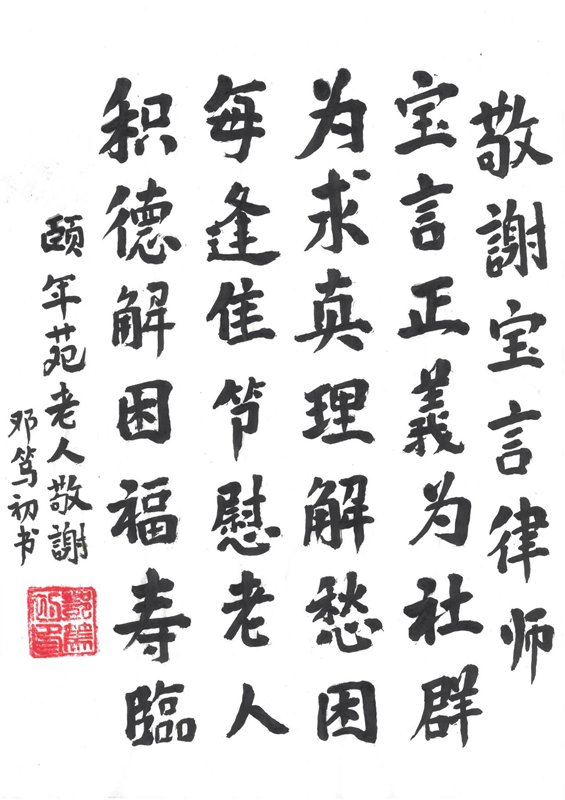 敬謝宝言律师
宝言正義为社群
为求真理解愁困
每逢佳节慰老人
积德解困福寿臨
颐年苑老人敬謝
邓笃初书